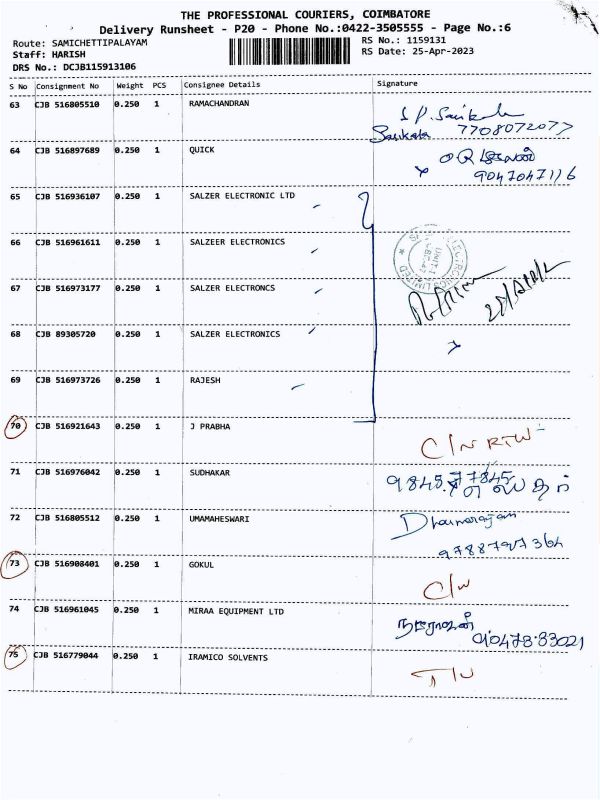 THE PROFESSIONAL COURIERS, COIMBATORE
Delivery Runsheet - P20 - Phone No.:0422-3505555 - Page No.:6
Route: SAMICHETTIPALAYAM RS No.: 1159131
Staff: HARISH RS Date: 25-Apr-2023
DRS No.: DCJB115913106
S No Consignment No Weight PCS Consignee Details Signature
63 CJB 516805510 0.250 1 RAMACHANDRAN
Sasikala 7708072077
64 CJB 516897689 0.250 1 QUICK
9047047116
65 CJB 516936107 0.250 1 SALZER ELECTRONIC LTD
66 CJB 516961611 0.250 1 SALZEER ELECTRONICS
67 CJB 516973177 0.250 1 SALZER ELECTRONCS
68 CJB 89305720 0.250 1 SALZER ELECTRONICS
69 CJB 516973726 0.250 1 RAJESH
70 CJB 516921643 0.250 1 J PRABHA
C/N RTW
71 CJB 516976042 0.250 1 SUDHAKAR
72 CJB 516805512 0.250 1 UMAMAHESWARI
9788797364
73 CJB 516908401 0.250 1 GOKUL
74 CJB 516961045 0.250 1 MIRAA EQUIPMENT LTD
75 CJB 516779044 0.250 1 IRAMICO SOLVENTS